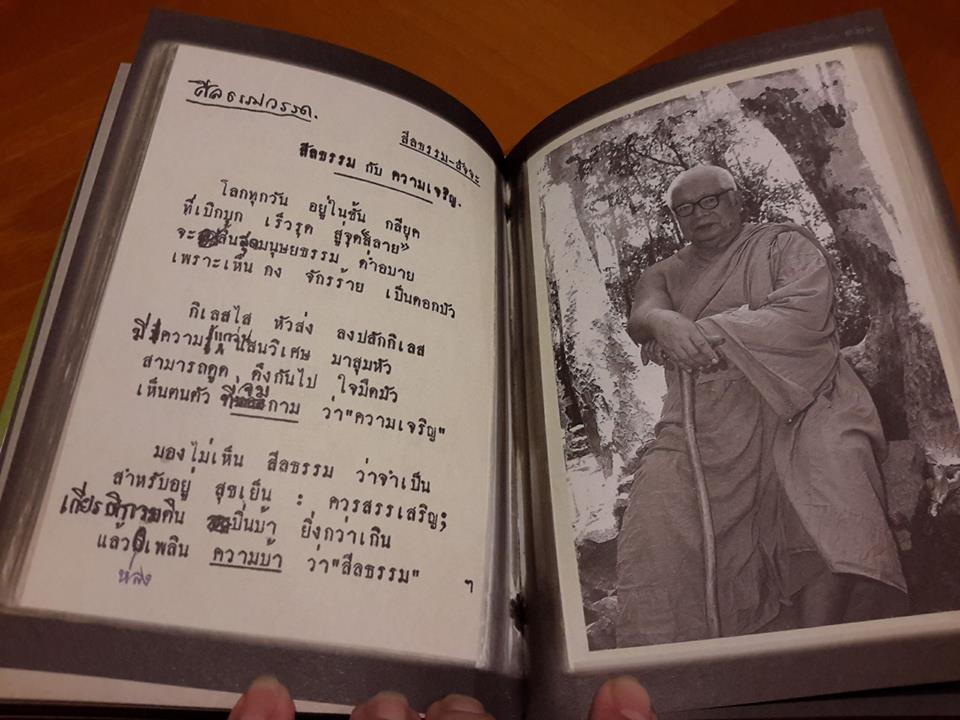 ศีลธรรมวรรค.
สีลธรรม-สัจจะ
สีลธรรม กับ ความเจริญ.
โลกทุกวัน อยู่ในขั้น กลียุค
ที่เบิกบุก เร็วรุด สู่จุดสลาย
จะสิ้นสุดมนุษยธรรม ค่ำอบาย
เพราะเห็น กง จักรร้าย เป็นดอกบัว
กิเลสไส หัวส่ง ลงปลักกิเลส
มีความ แสนวิเศษ มาสุมหัว
สามารถดูด ดึงกันไป ใจมืดมัว
เห็นตนตัว ที่จมกาม ว่า"ความเจริญ"
มองไม่เห็น สีลธรรม ว่าจำเป็น
สำหรับอยู่ สุขเย็น : ควรสรรเสริญ;
เกียรติกามกิน บิ่นบ้า ยิ่งกว่าเกิน
แล้วหลงเพลิน ความบ้า ว่า"สีลธรรม" ฯ